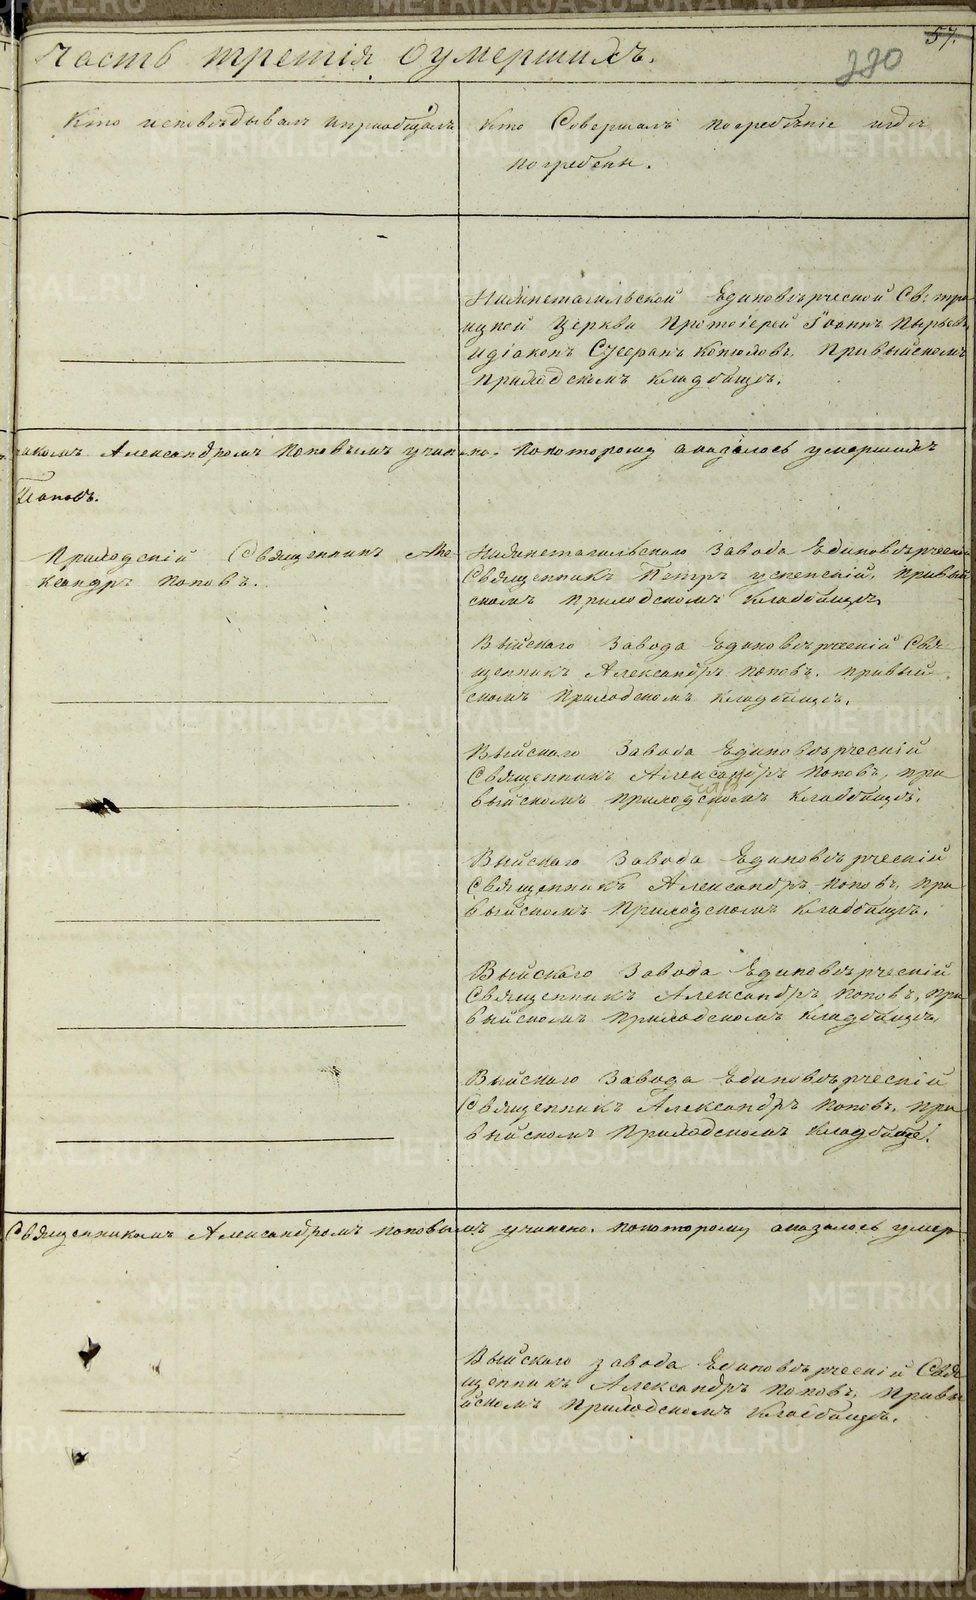 57.
220
Часть третія оумершихъ.
Кто исповѣдывалъ ипріобщалъ
Кто Совершалъ погребѣніе игдѣ
погребены.
Нижнетагильской Единовѣрческой Св: тро
ицкой Церкви Протоіерей Іоаннъ Пырьевъ
идіаконъ Копыловъ. Привыйскомъ
Приходскомъ кладбищѣ.
Александромъ Поповымъ учинено. Покоторому оказалось умершихъ
Поповъ.
Приходскій Священникъ Але
ксандръ Поповъ.
Нижнетагильскаго Завода Единовѣрческій
Священникъ Петръ успенскій, Привый
скомъ приходскомъ Кладбищѣ
Выйскаго Завода Единовѣрческій Свя
щенникъ Александръ Поповъ. привый
скомъ Приходскомъ Кладбищѣ.
Выйскаго Завода Единовѣрческій
Священникъ Александръ Поповъ, при
выйскомъ приходскомъ Кладбищѣ.
Выйскаго Завода Единовѣрческій
Священникъ Александръ Поповъ, при
выйскомъ Приходскомъ Кладбищѣ.
Выйскаго Завода Единовѣрческій
Священникъ Александръ Поповъ, при
выйскомъ приходскомъ Кладбищѣ
Выйскаго Завода Единовѣрческій
Священникъ Александръ Поповъ, при
выйскомъ Приходскомъ Кладбище.
Священникомъ Александромъ Поповымъ учинено. покоторому оказалось умер
Выйскаго завода Единовѣрческій Свя
щенникъ Александръ Поповъ, Привы
йскомъ Приходскомъ Кладбищѣ.
METRIKI.GASO-URAL.RU